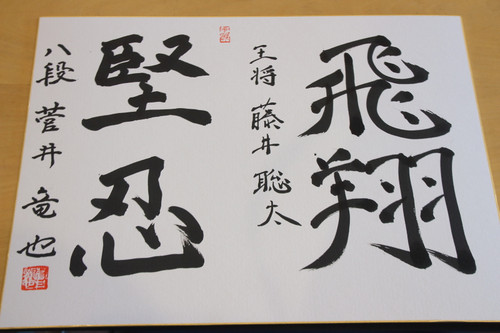 飛翔
王将 藤井聡太
堅忍
八段 菅井竜也